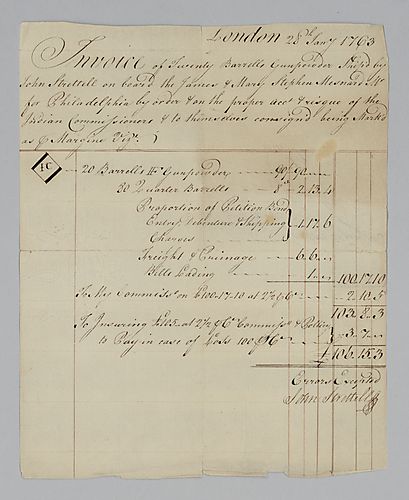 London 28th Jany 1763
Invoice of Twenty Barrells Gunpowder Shipd by
John Strettell on board the James & Mary Stephen Mesnard Mr
for Philadelphia by order & on the proper acct & risque of the
Indian Commissioners & to themselves consigned being Mark'd
as ℔ Margine Vizt.
IC 20 Barrells Gunpowder 90/ 90
20 Quarter Barrells 2.13.4
Proportion of Petition Bond
Entry, Debenture & Shipping 1.17.6
Charges
Freight & Primage 6.6
Bills Lading 1 100.17.10
To My Commissn on £100.17.10 at 2½ ℔Ct 2.10.5
103.8.3
To Insuring £105 at 2½ ℔Ct Commissn & Pollicy
to Pay in case of Loss 100 ℔Ct 3.7
£ 106.15.3
Errors Excepted
John Strettell